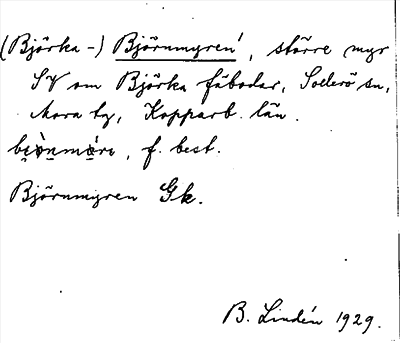 (Björka-) Björnmyren, större myr
SV om Björka fäbodar, Sollerö sn,
Mora tg, Kopparb. län.
f. best.
Björnmyren Gk.
B. Lindén 1929.